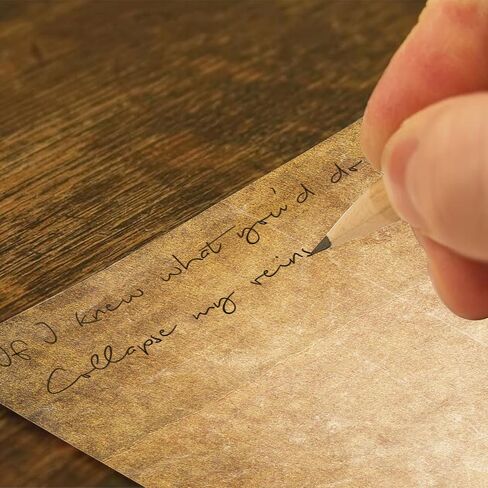 If I knew what you'd do
Collapse my reins